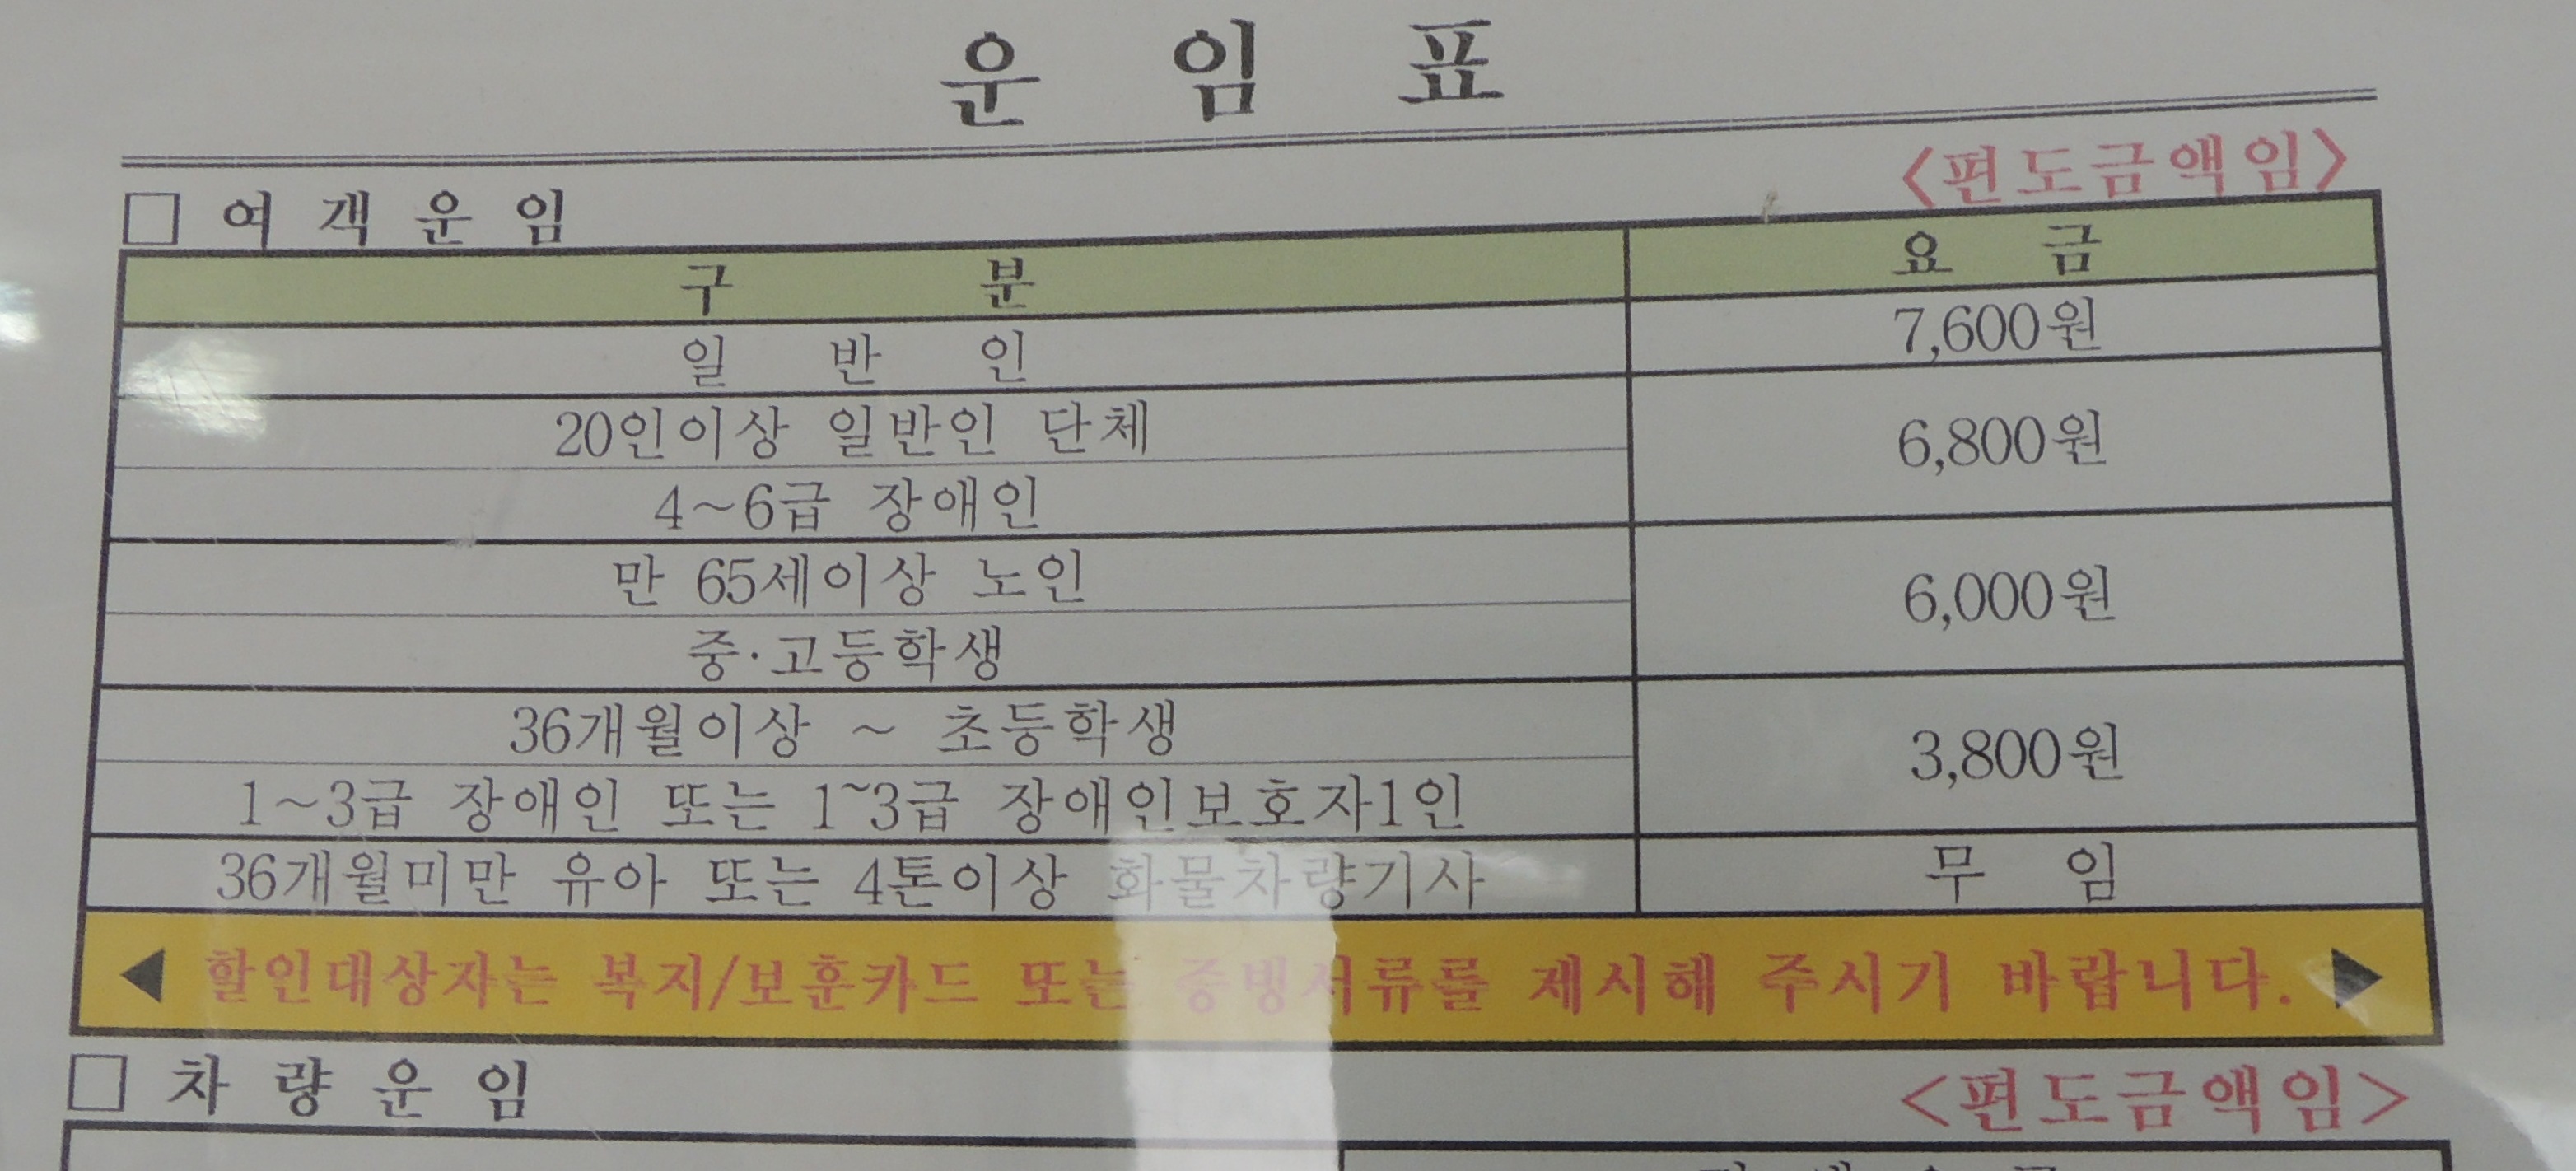 운 임 표
<편도금액임>
□ 여 객 운 임
구 분 요 금
일 반 인 7,600원
20인이상 일반인 단체
6,800원
4~6급 장애인
만 65세이상 노인
6,000원
중·고등학생
36개월이상 ~ 초등학생
3,800원
1~3급 장애인 또는 1~3급 장애인보호자1인
36개월미만 유아 또는 4톤이상 화물차량기사 무 임
◀ 할인대상자는 복지/보훈카드 또는 증빙서류를 제시해 주시기 바랍니다. ▶
□ 차 량 운 임
<편도금액임>